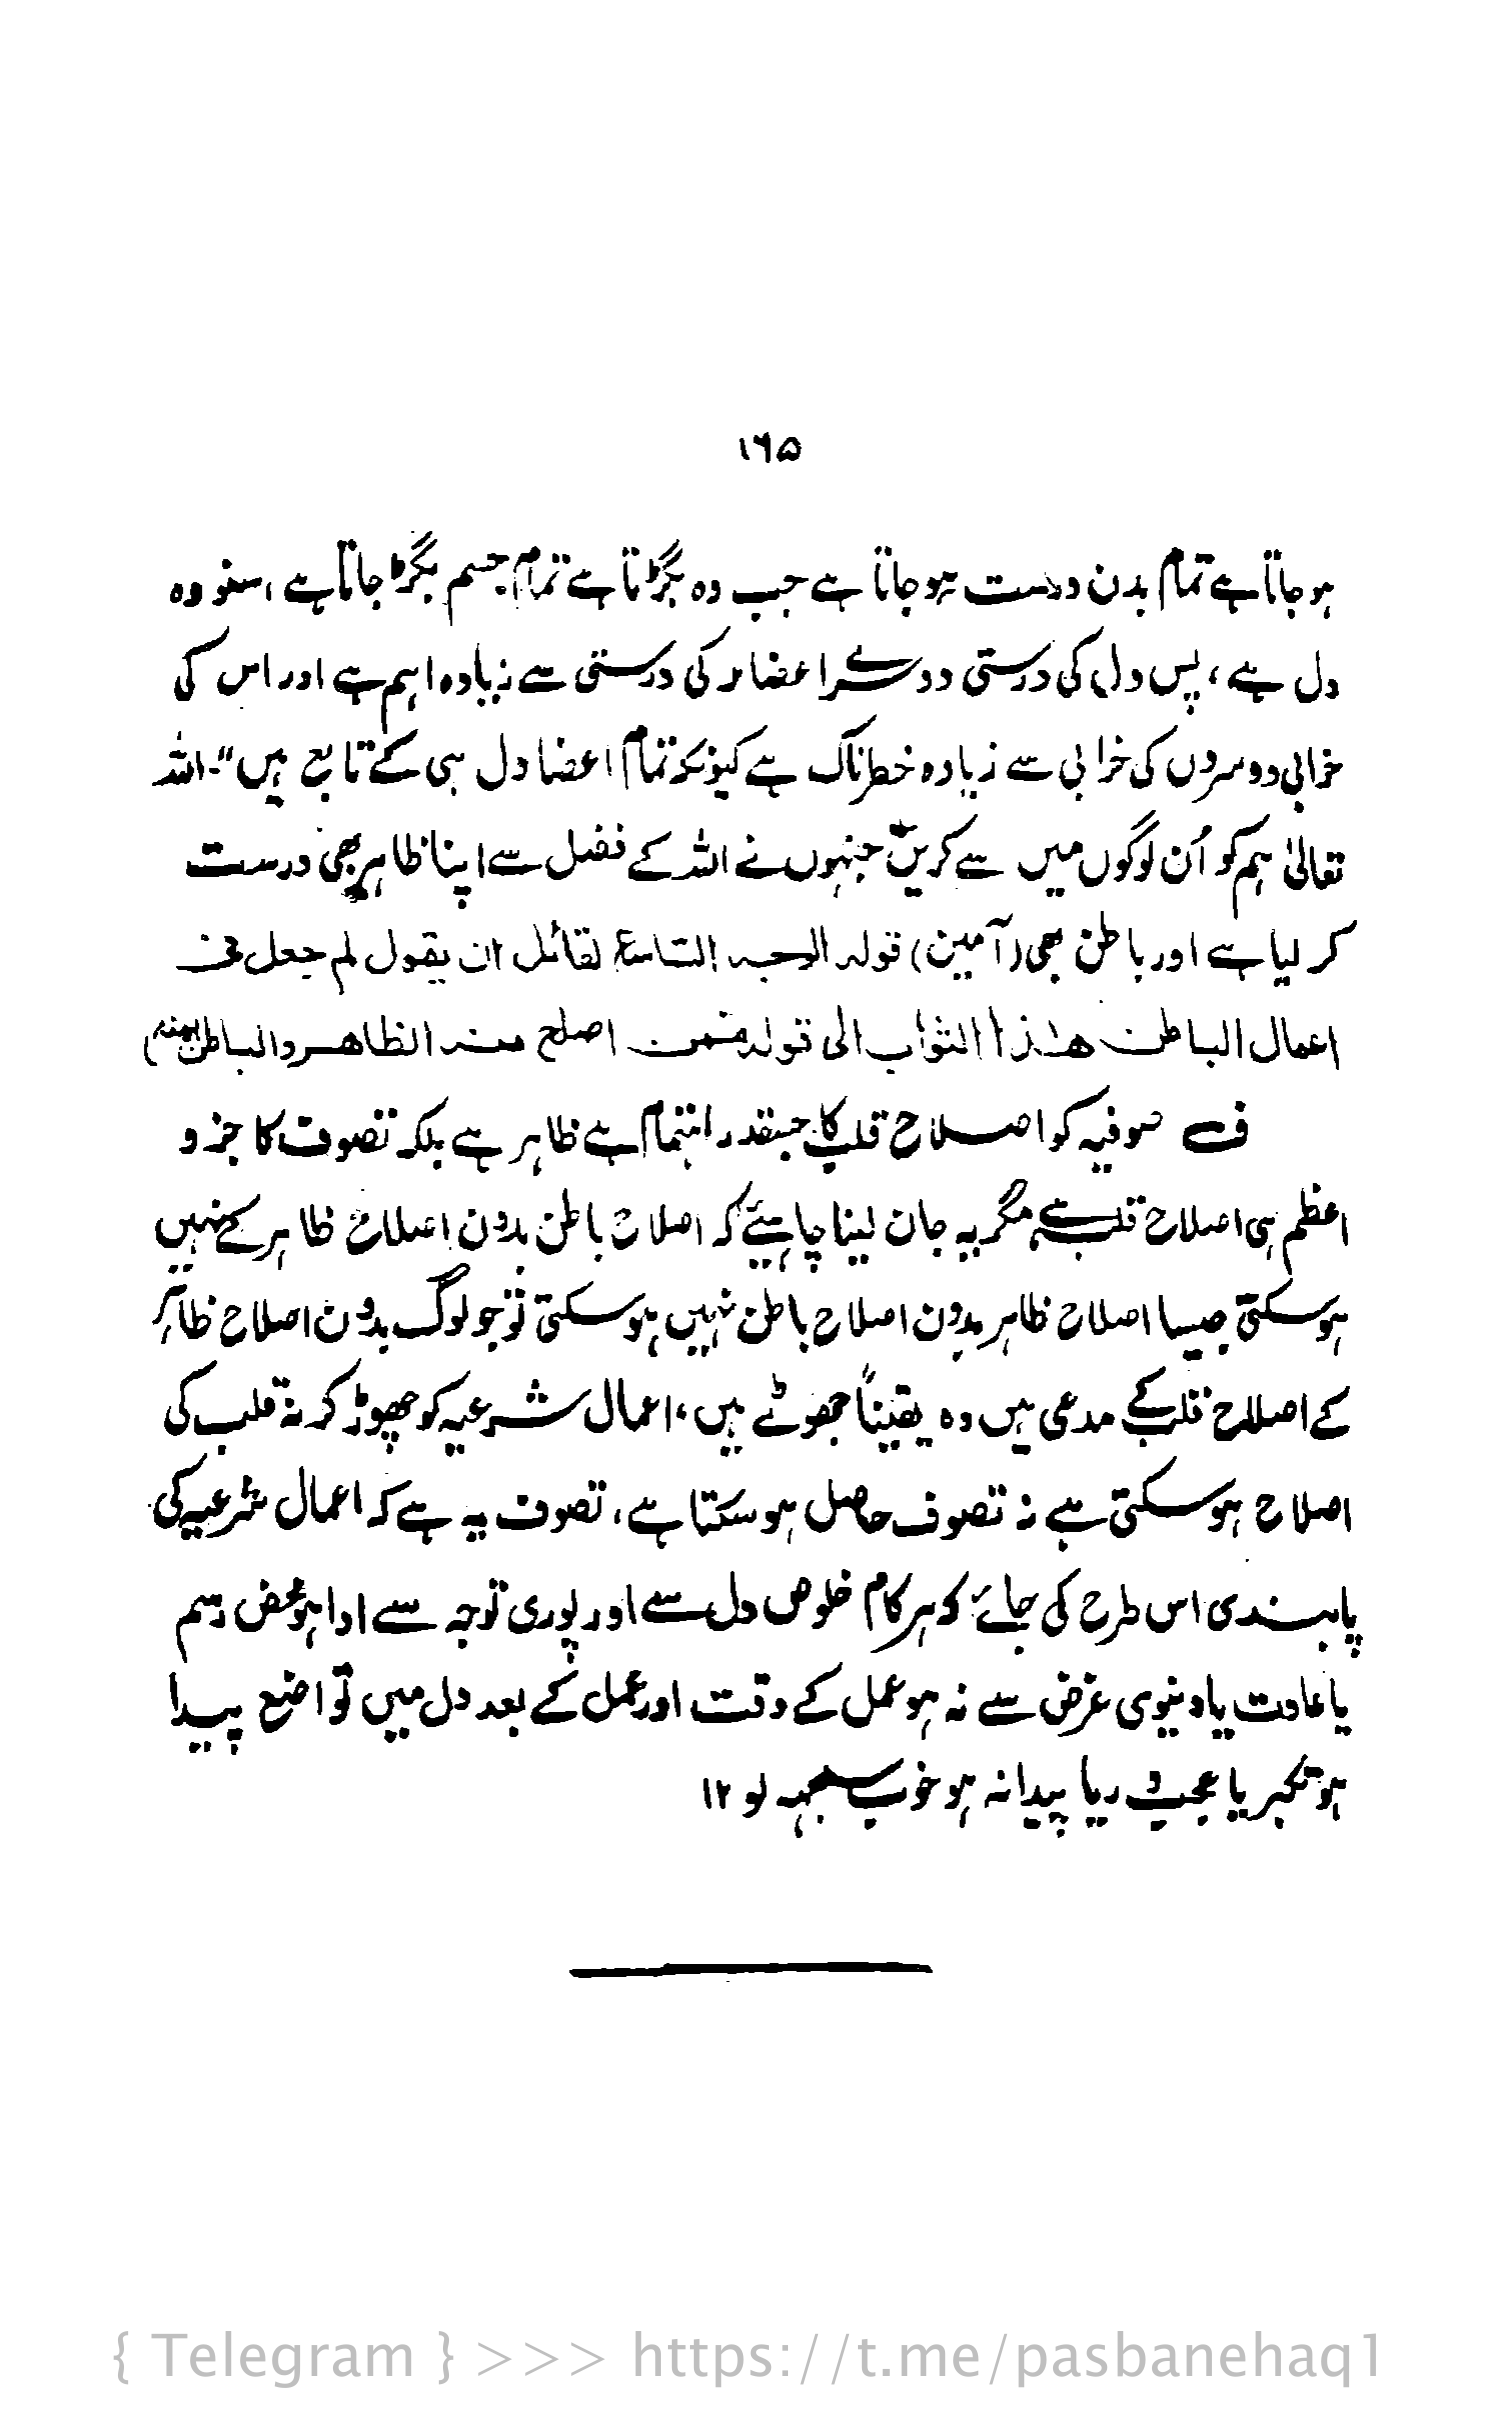 ۱۶۵
ہو جاتا ہے تمام بدن درست ہو جاتا ہے جب وہ بگڑتا ہے تمام جسم بگڑ جاتا ہے، سنو وہ
دل ہے، پس دل کی درستی دوسرے اعضاء کی درستی سے زیادہ اہم ہے اور اس کی
خرابی دوسروں کی خرابی سے زیادہ خطرناک ہے کیونکہ تمام اعضا دل ہی کے تابع ہیں"۔ اللہ
تعالیٰ ہم کو اُن لوگوں میں سے کریں جنہوں نے اللہ کے فضل سے اپنا ظاہر بھی درست
کر لیا ہے اور باطن بھی (آمین) قولہ الوجہ التاسع لقائل ان یقول لم جعل فی
اعمال الباطن ھذا الثواب الی قولہ فمن اصلح منہ الظاھر والباطن بمنہ)
ف صوفیہ کو اصلاح قلب کا جسقدر اہتمام ہے ظاہر ہے بلکہ تصوف کا جزو
اعظم ہی اصلاح قلب ہے مگر یہ جان لینا چاہیئے کہ اصلاح باطن بدون اصلاح ظاہر کے نہیں
ہو سکتی جیسا اصلاح ظاہر بدون اصلاح باطن نہیں ہو سکتی تو جو لوگ بدون اصلاح ظاہر
کے اصلاح قلب کے مدعی ہیں وہ یقیناً جھوٹے ہیں، اعمال شرعیہ کو چھوڑ کر نہ قلب کی
اصلاح ہو سکتی ہے نہ تصوف حاصل ہو سکتا ہے، تصوف یہ ہے کہ اعمال شرعیہ کی
پابندی اس طرح کی جائے کہ ہر کام خلوص دل سے اور پوری توجہ سے ادا ہو محض رسم
یا عادت یا دنیوی غرض سے نہ ہو عمل کے وقت اور عمل کے بعد دل میں تواضع پیدا
ہو تکبر یا عجب و ریا پیدا نہ ہو خوب سمجھ لو ۱۲
{ Telegram } >>> https://t.me/pasbanehaq1